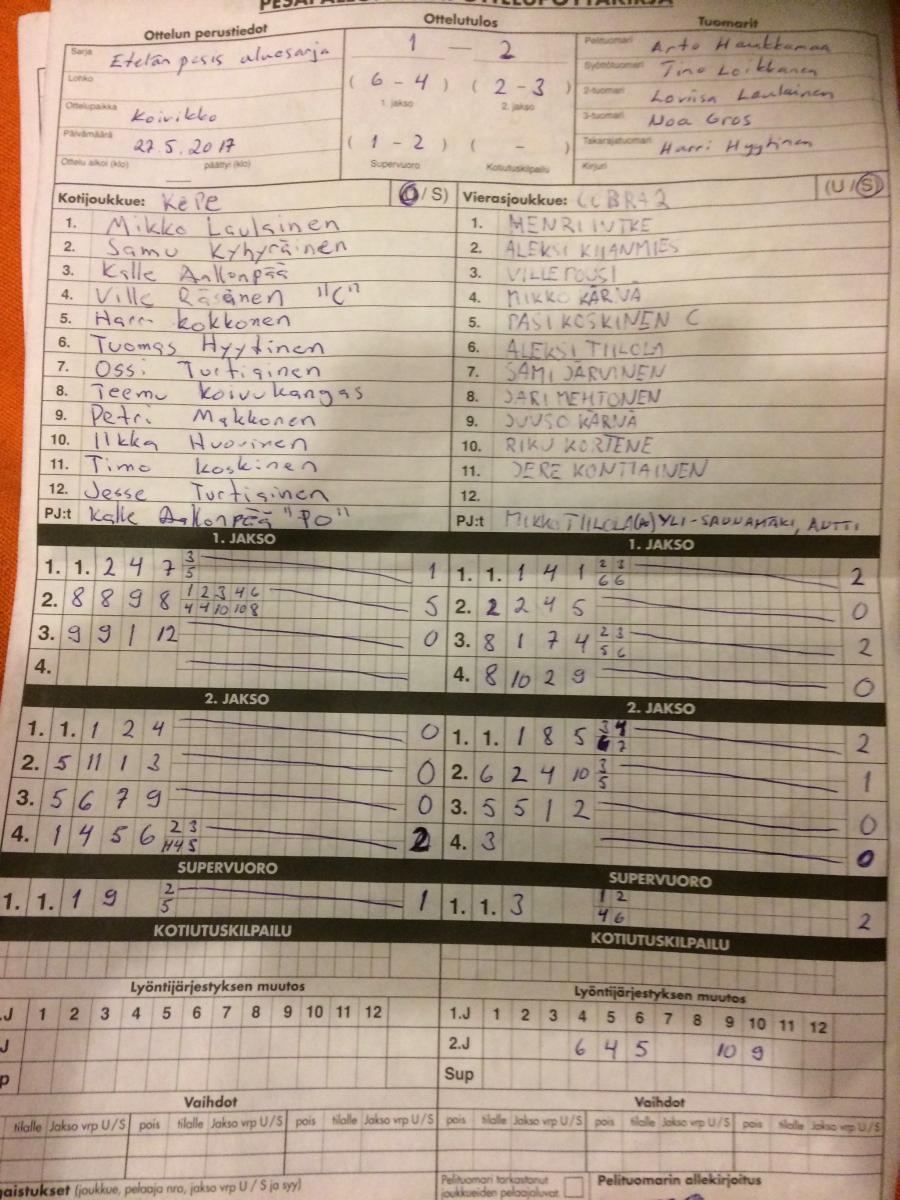 Ottelun perustiedot
Ottelutulos
Tuomarit
Sarja Etelän pesis aluesarja
1 — 2
Pelituomari Arto Haukkamaa
Lohko
( 6 - 4 ) ( 2 - 3 )
Syöttötuomari Timo Loikkanen
1. jakso 2. jakso
2-tuomari Loviisa Laulainen
Ottelupaikka Koivikko
3-tuomari Noa Gros
Päivämäärä 27.5.2017
( 1 - 2 ) ( - )
Takarajatuomari Harri Hyytinen
Ottelu alkoi (klo) päättyi (klo)
Supervuoro Kotiutuskilpailu
Kirjuri
Kotijoukkue: KePe (U / S)
1. Mikko Laulainen
2. Samu Kyhyräinen
3. Kalle Aallonpää
4. Ville Räsänen "C"
5. Harri Kokkonen
6. Tuomas Hyytinen
7. Ossi Turtiainen
8. Teemu Koivukangas
9. Petri Makkonen
10. Ilkka Huovinen
11. Timo Koskinen
12. Jesse Turtiainen
PJ:t Kalle Aallonpää "PO"
Vierasjoukkue: (U / S)
1. HENRI INTKE
2. ALEKSI KIJANMIES
3. VILLE POUSI
4. MIKKO KÄRNÄ
5. PASI KOSKINEN C
6. ALEKSI TIILOLA
7. SAMI JÄRVINEN
8. JARI MEHTONEN
9. JUUSO KÄRNÄ
10. RIKU KORTENE
11. JERE KONTIAINEN
12.
PJ:t MIKKO TIILOLA YLI-SAUNAMÄKI, ANTTI
1. JAKSO
1. 1. 2 4 7 3 1
5
2. 8 8 9 8 1 2 3 4 6 5
4 4 10 10 8
3. 9 9 1 12 0
4.
1. JAKSO
1. 1. 1 4 1 2 3 2
6 6
2. 2 2 4 5 0
3. 8 1 7 4 2 3 2
5 6
4. 8 10 2 9 0
2. JAKSO
1. 1. 1 2 4 0
2. 5 11 1 3 0
3. 5 6 7 9 0
4. 1 4 5 6 2 3 2
4 5
2. JAKSO
1. 1. 1 8 5 3 4 2
7
2. 6 2 4 10 3 1
5
3. 5 5 1 2 0
4. 3 0
SUPERVUORO
1. 1. 1 9 2 1
5
SUPERVUORO
1. 1. 3 1 2 2
4 6
KOTIUTUSKILPAILU
KOTIUTUSKILPAILU
Lyöntijärjestyksen muutos
.J 1 2 3 4 5 6 7 8 9 10 11 12
J
p
Lyöntijärjestyksen muutos
1.J 1 2 3 4 5 6 7 8 9 10 11 12
2.J 6 4 5 10 9
Sup
Vaihdot
tilalle Jakso vrp U / S pois tilalle Jakso vrp U / S pois tilalle Jakso vrp U / S
Vaihdot
pois tilalle Jakso vrp U / S pois tilalle Jakso vrp U / S
gaistukset (joukkue, pelaaja nro, jakso vrp U / S ja syy)
Pelituomari tarkastanut
joukkueiden pelaajaluvat
Pelituomarin allekirjoitus